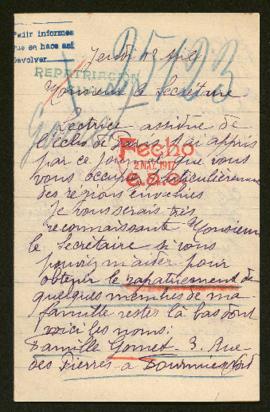 Pedir informes
que se hace así
devolver
REPATRIACIÓN
Monsieur le Secrétaire
Lectrice assidue de
l'Echo de Paris j'ai appris
par ce journal que vous
vous occupez particulièrement
des régions envahies
Fecho
2 MAY. 1917
Je vous serais très
reconnaissante Monsieur
le Secretaire si vous
pouviez m'aider pour
obtenir le rapatriement de
quelques membres de ma
famille restés là bas dont
voici les noms:
Famille Gomet 3. Rue
des Pierres à